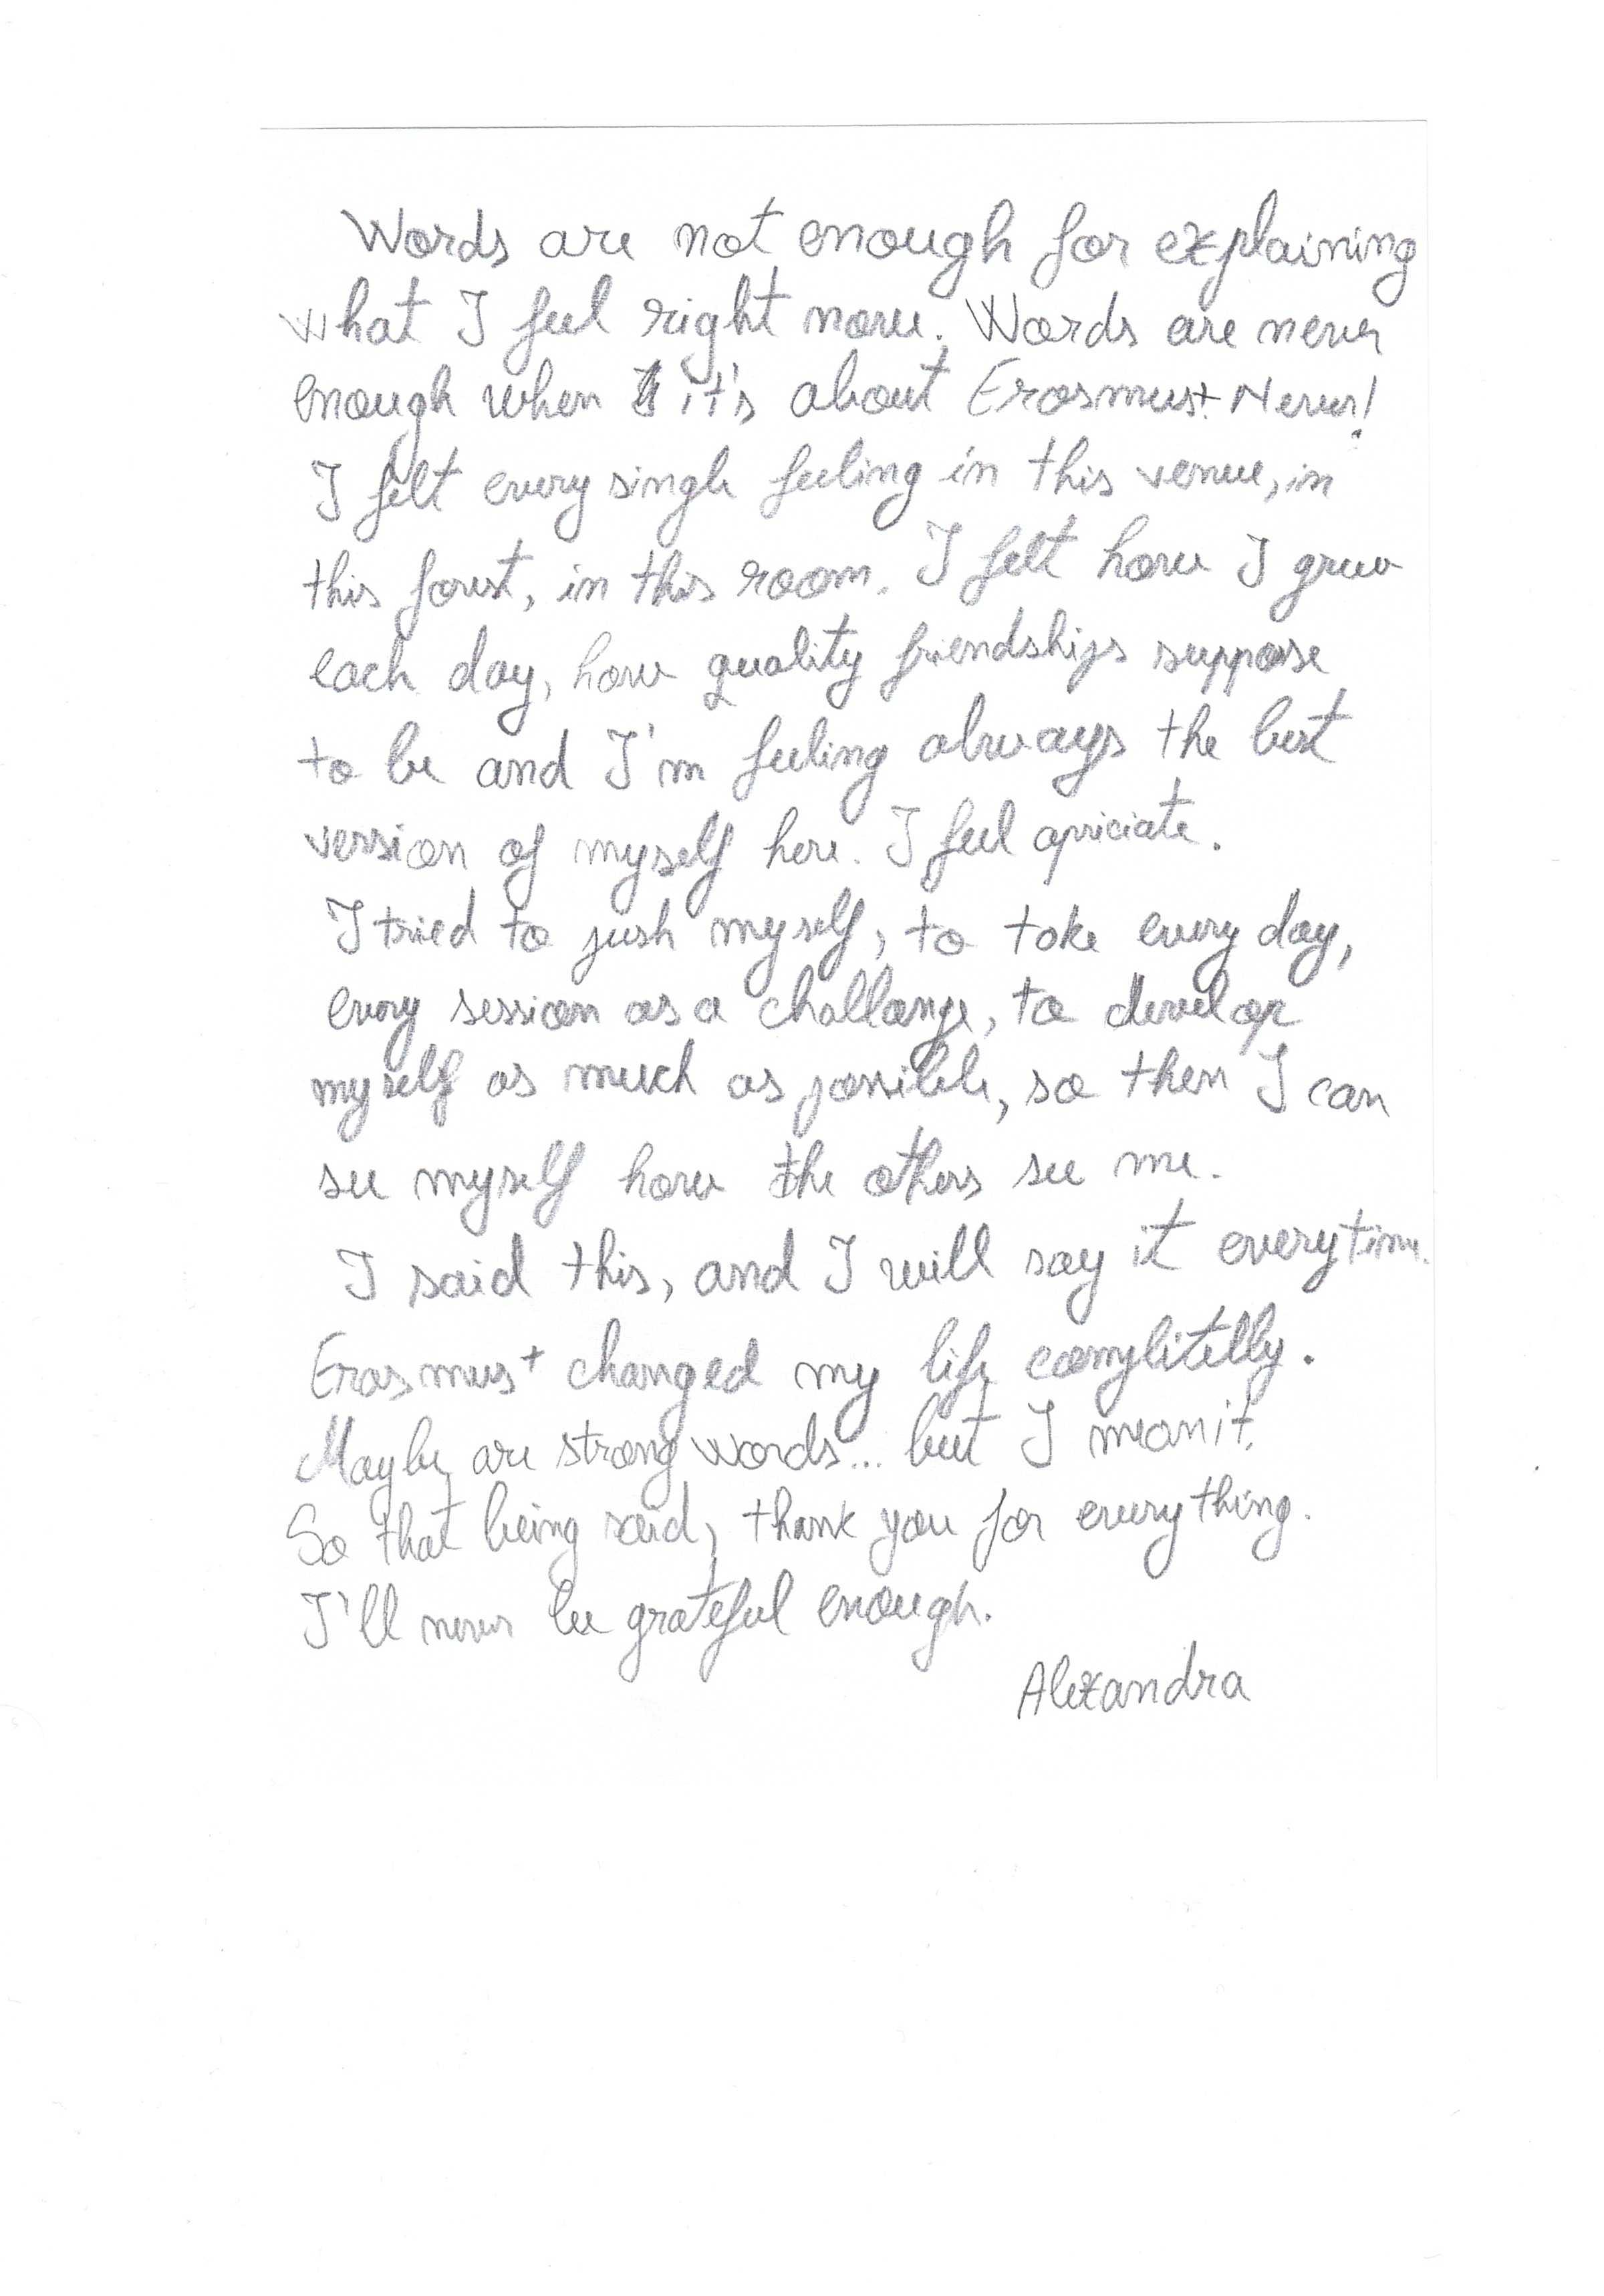 Words are not enough for explaining
what I feel right now. Words are never
enough when it's about Erasmus+. Never!
I felt every single feeling in this venue, in
this forest, in this room. I felt how I grew
each day, how quality friendships suppose
to be and I'm feeling always the best
version of myself here. I feel apriciate.
I tried to push myself, to take every day,
every session as a challange, to develop
myself as much as possible, so then I can
see myself how the others see me.
I said this, and I will say it everytime.
Erasmus+ changed my life complitelly.
Maybe are strong words... but I mean it.
So that being said, thank you for everything.
I'll never be grateful enough.
Alexandra